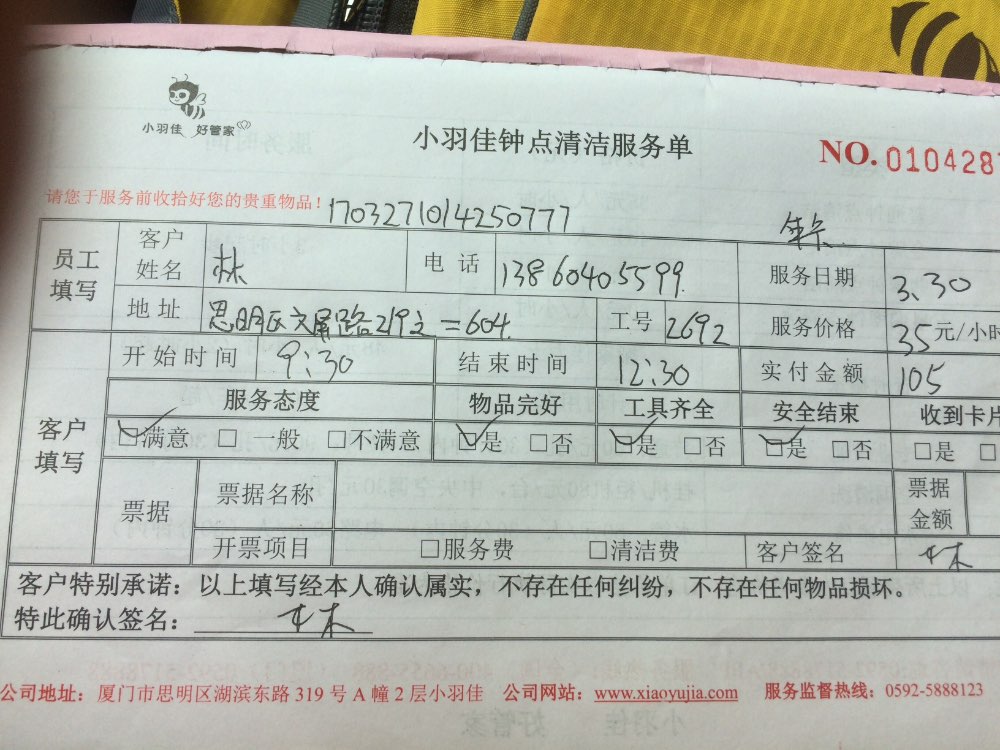 小羽佳 好管家
小羽佳钟点清洁服务单
NO. 0104287
请您于服务前收拾好您的贵重物品！
1703271014250777
员工填写 客户姓名 林 电话 13860405599 服务日期 3.30
地址 思明区文屏路219之二604 工号 2692 服务价格 35元/小时
客户填写 开始时间 9:30 结束时间 12:30 实付金额 105
服务态度 物品完好 工具齐全 安全结束 收到卡片
☑满意 □一般 □不满意 ☑是 □否 ☑是 □否 ☑是 □否 □是 □
票据 票据名称 票据金额
开票项目 □服务费 □清洁费 客户签名 林
客户特别承诺：以上填写经本人确认属实，不存在任何纠纷，不存在任何物品损坏。
特此确认签名： 林
公司地址：厦门市思明区湖滨东路 319 号 A 幢 2 层小羽佳 公司网站：www.xiaoyujia.com 服务监督热线：0592-5888123